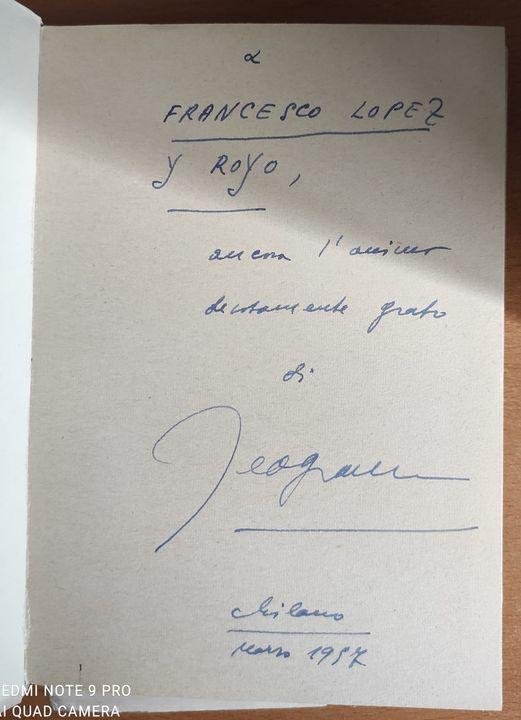 a
FRANCESCO LOPEZ
Y ROYO,
ancora l'animo
devotamente grato
di
Milano
marzo
1
EDMI NOTE 9 PRO
AI QUAD CAMERA